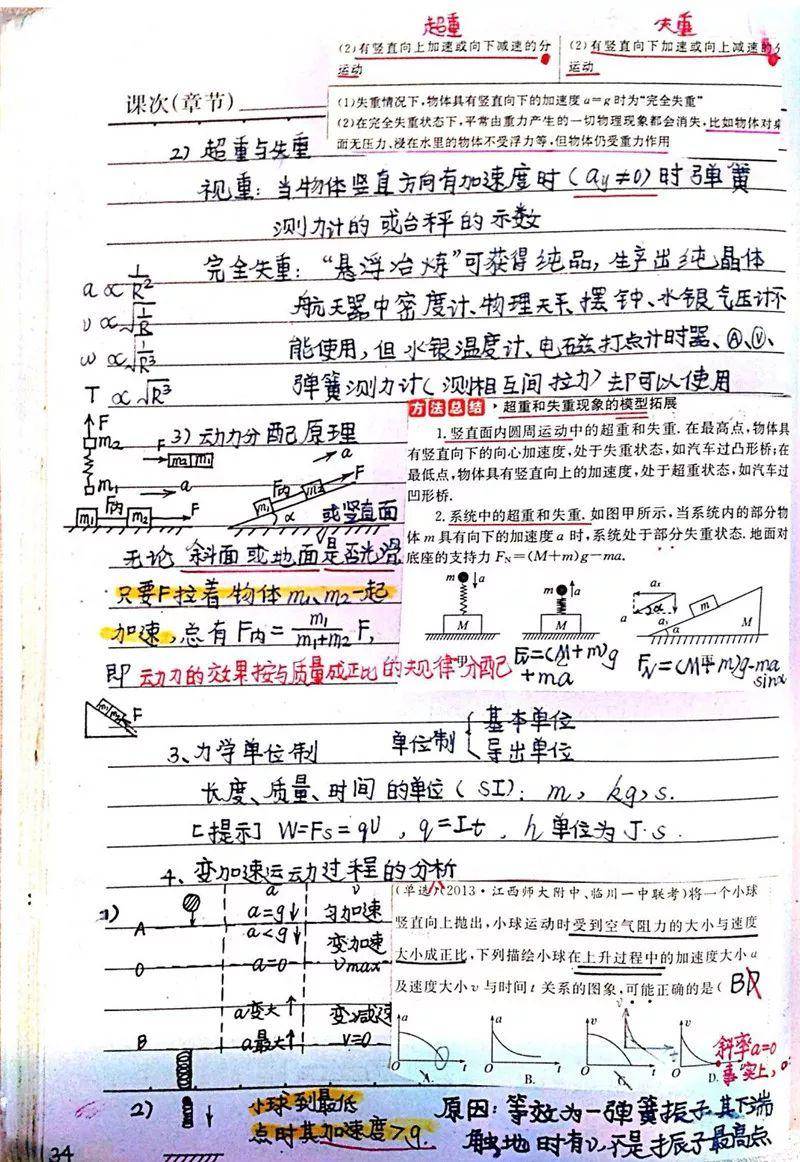 超重
失重
(2)有竖直向上加速或向下减速的分
运动
(2)有竖直向下加速或向上减速的分
运动
(1)失重情况下,物体具有竖直向下的加速度a=g时为“完全失重”
(2)在完全失重状态下,平常由重力产生的一切物理现象都会消失,比如物体对桌
面无压力、浸在水里的物体不受浮力等,但物体仍受重力作用
课次(章节)
2) 超重与失重
视重: 当物体竖直方向有加速度时(ay≠0)时弹簧
测力计的或台秤的示数
完全失重: “悬浮冶炼”可获得纯品, 生产出纯晶体
航天器中密度计、物理天平、摆钟、水银气压计不
能使用, 但水银温度计、电磁打点计时器、Ⓐ、Ⓥ、
弹簧测力计(测相互间拉力)却可以使用
a ∝ 1/R²
v ∝ √(1/R)
ω ∝ √(1/R³)
T ∝ √R³
3) 动力分配原理
F
m2
m1
F
m2 m1
a
F内
m1 m2
F
a
F
F内
m1
m2
α
或竖直面
无论斜面或地面是否光滑
只要F拉着物体m1、m2一起
加速, 总有F内=m1/(m1+m2) F,
即动力的效果按与质量成正比的规律分配
m1 m2 F
方法总结·超重和失重现象的模型拓展
1.竖直面内圆周运动中的超重和失重.在最高点,物体具
有竖直向下的向心加速度,处于失重状态,如汽车过凸形桥;在
最低点,物体具有竖直向上的加速度,处于超重状态,如汽车过
凹形桥.
2.系统中的超重和失重.如图甲所示,当系统内的部分物
体m具有向下的加速度a时,系统处于部分失重状态.地面对
底座的支持力FN=(M+m)g-ma.
m a
M
甲
m a
M
ax
a
ay
α
m
M
α
FN=(M+m)g
+ma
FN=(M+m)g-ma
sinα
3、力学单位制
单位制{基本单位
导出单位
长度、质量、时间的单位(SI): m, kg, s.
[提示] W=Fs=qU, q=It, h单位为J·s.
4、变加速运动过程的分析
1)
a
v
a=g↓
匀加速
A
a<g↓
变加速
O
a=0
vmax
a变大↑
变减速
B
a最大↑
v=0
(单选)(2013·江西师大附中、临川一中联考)将一个小球
竖直向上抛出,小球运动时受到空气阻力的大小与速度
大小成正比,下列描绘小球在上升过程中的加速度大小a
及速度大小v与时间t关系的图象,可能正确的是( BD
a
O t
A.
a
O t
B.
v
O t
C.
v
O t
D.
斜率a=0
事实上,
2)
小球到最低
点时其加速度>g.
原因: 等效为一弹簧振子其下端
触地时有v,不是振子最高点
34